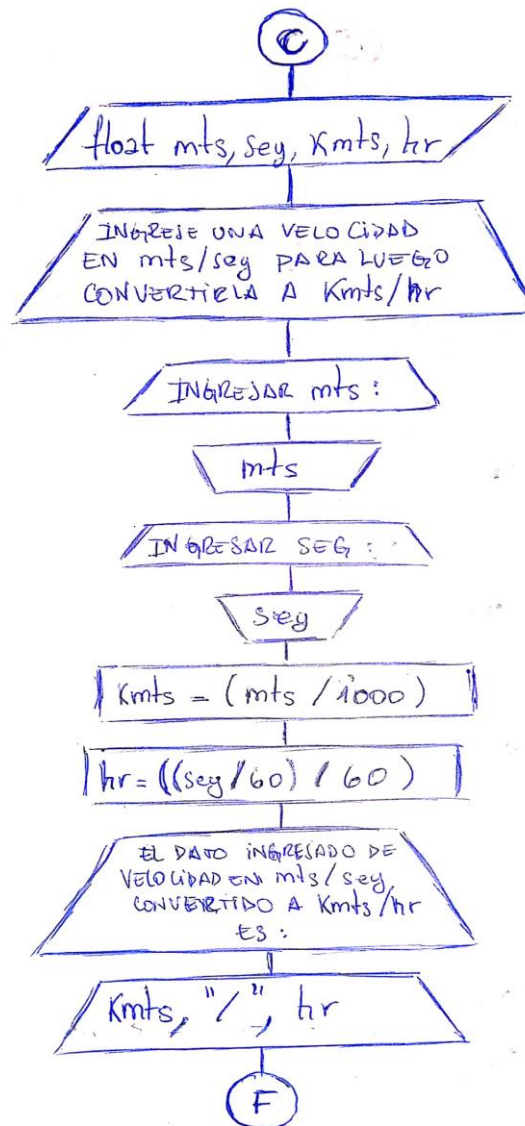 C
float mts, seg, Kmts, hr
INGRESE UNA VELOCIDAD
EN mts/seg PARA LUEGO
CONVERTIRLA A Kmts/hr
INGRESAR mts:
mts
INGRESAR SEG:
seg
Kmts = (mts / 1000)
hr = ((seg/60) / 60)
EL DATO INGRESADO DE
VELOCIDAD EN mts/seg
CONVERTIDO A Kmts/hr
ES:
Kmts, "/", hr
F